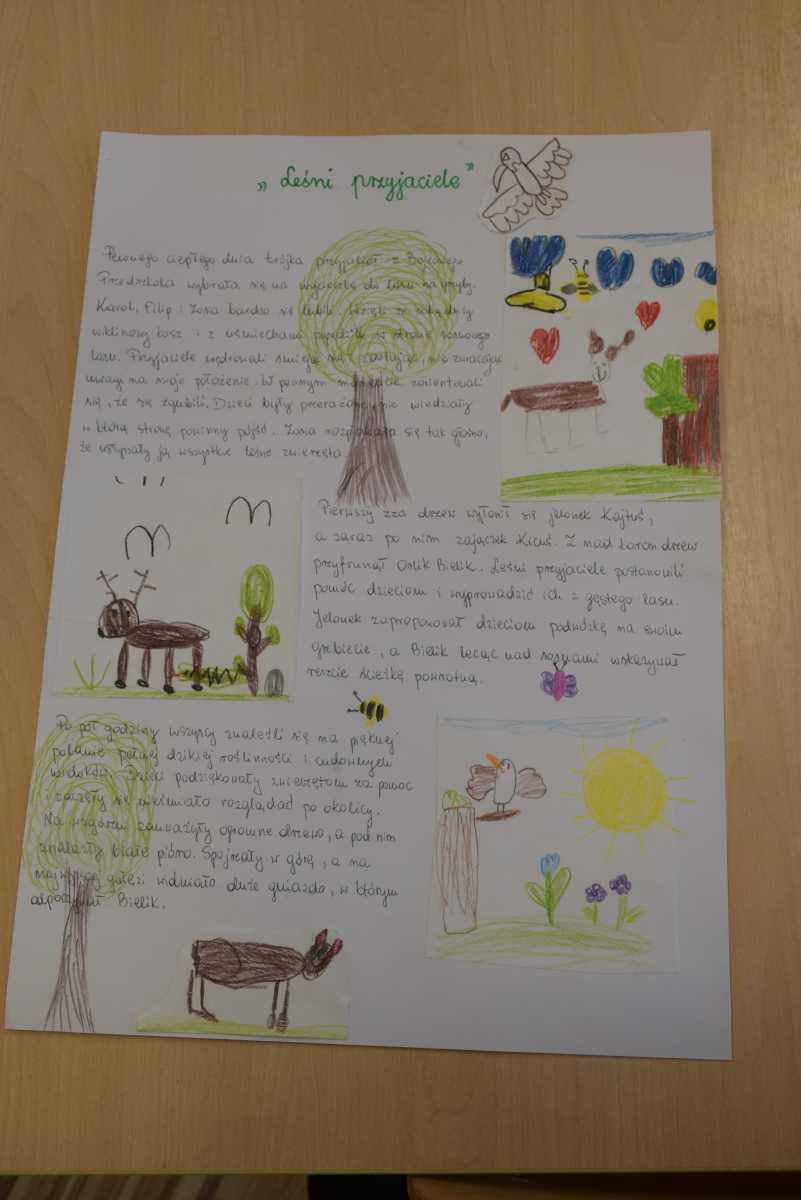 „Leśni przyjaciele”
Pewnego ciepłego dnia trójka przyjaciół z Bajkowego
Przedszkola wybrała się na wycieczkę do lasu na grzyby.
Karol, Filip i Zosia bardzo się lubili. Wzięli ze sobą duży
wiklinowy kosz i z uśmiechami popędzili w stronę sosnowego
lasu. Przyjaciele wędrowali śmiejąc się i żartując, nie zwracając
uwagi na swoje położenie. W pewnym momencie zorientowali
się, że się zgubili. Dzieci były przerażone, nie wiedziały
w którą stronę powinny pójść. Zosia rozpłakała się tak głośno,
że usłyszały ją wszystkie leśne zwierzęta.
Pierwszy zza drzew wyłonił się jelonek Kajtuś,
a zaraz po nim zajączek Kicuś. Z nad koron drzew
przyfrunął Orlik Bielik. Leśni przyjaciele postanowili
pomóc dzieciom i wyprowadzić ich z gęstego lasu.
Jelonek zaproponował dzieciom podróżkę na swoim
grzbiecie, a Bielik lecąc nad sosnami wskazywał
reszcie ścieżkę powrotną.
Po pół godziny wszyscy znaleźli się na pięknej
polanie pełnej dzikiej roślinności i cudownych
widoków. Dzieci podziękowały zwierzętom za pomoc
i zaczęły się nieśmiało rozglądać po okolicy.
Na wzgórzu zauważyły ogromne drzewo, a pod nim
znalazły białe pióro. Spojrzały w górę, a na
najwyższej gałęzi widniało duże gniazdo, w którym
odpoczywał Bielik.